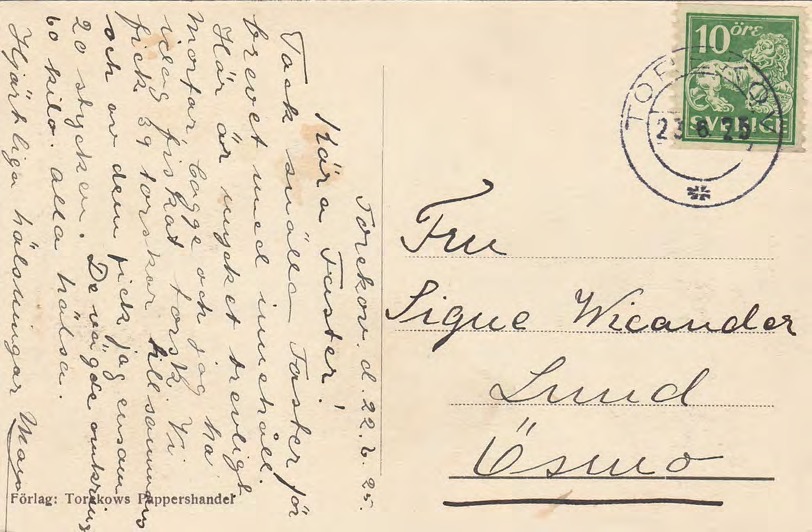 Torekov. d. 22.6.25.
Kära Faster!
Tack snälla Faster för
brevet med innehåll.
Här är mycket trevligt.
Morfar, Bagge och jag ha
idag fiskat torsk. Vi
fick 39 torskar tillsammans
och av dem fick jag ensam
20 stycken. De vägde omkring
60 kilo. alla hälsa.
Hjärtliga hälsningar
Fru
Signe Wicander
Lund
Ösmo
10 öre
SVERIGE
23.6.25
Förlag: Torekows Pappershandel